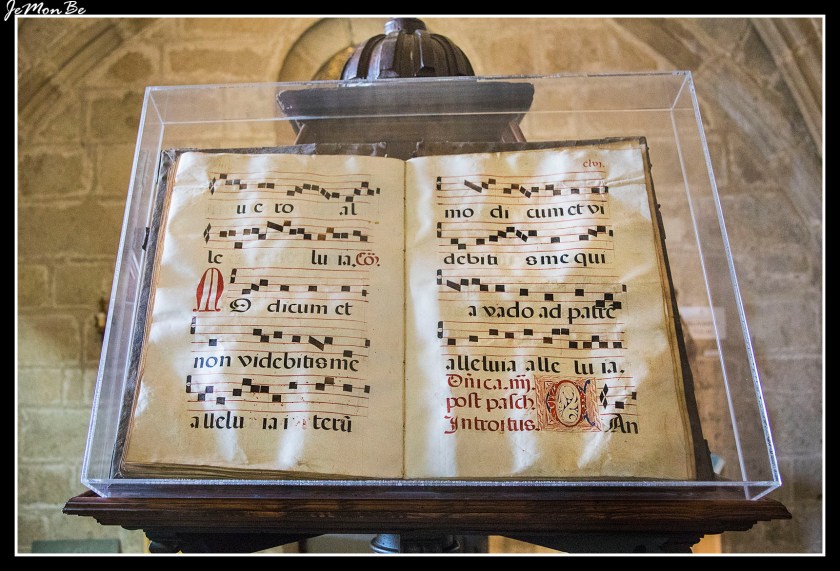 JeMonBe
u e ro al
le lu ia. Cõ.
MO dicum et
non videbitis me
allelu ia i terũ
clvj.
mo di cum et vi
debiti s me qui
a vado ad patrẽ
alleluia alle lu ia.
Dñica. iiij.
post pasch.
Introitus. C An